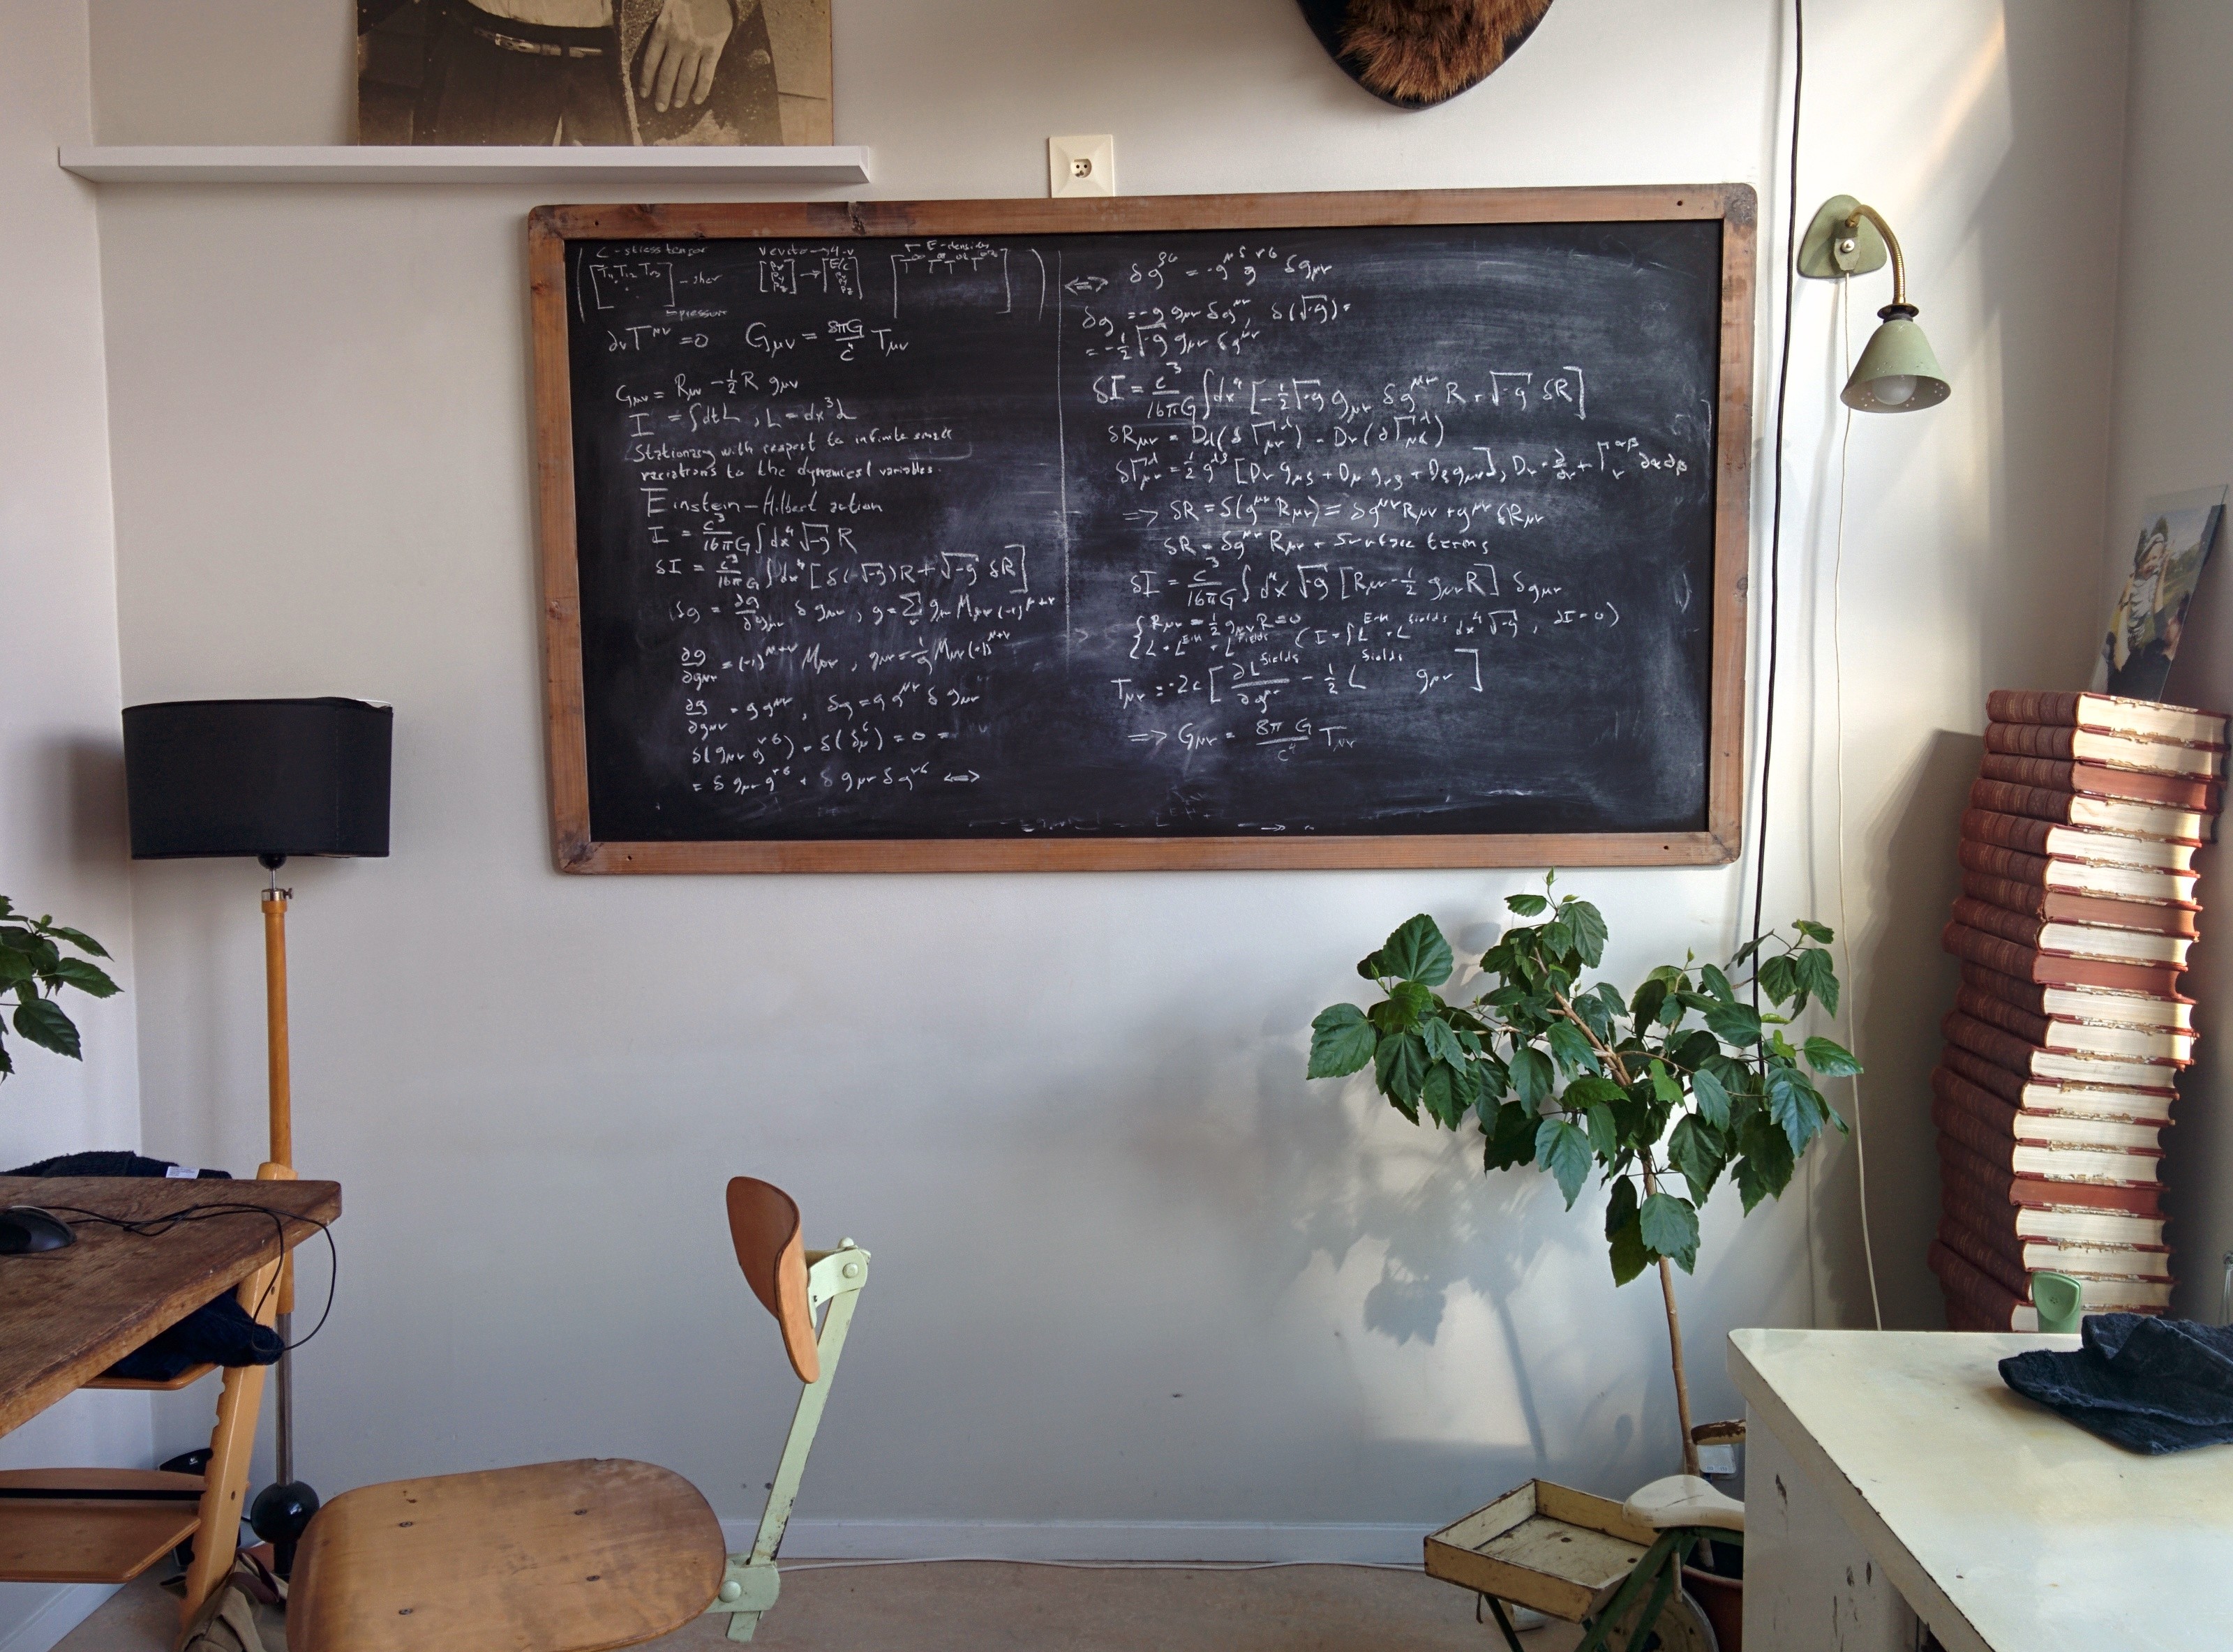 C-stress tensor
T₁₁ T₁₂ T₁₃
pressure
E-density
[Px Py Pz] → [E/c Px Py Pz]
∂ᵥT^μν = 0 G_μν = 8πG/c⁴ T_μν
G_μν = R_μν - ½ R g_μν
I = ∫dt L , L = dx³ L
Stationary with respect to infinite small
variations to the dynamical variables.
Einstein-Hilbert action
I = c³/16πG ∫dx⁴ √-g R
δI = c³/16πG ∫dx⁴ [δ(√-g)R + √-g δR]
δg = ∂g/∂g_μν δg_μν , g = Σ_ν g_μν M_μν (-1)^μ+ν
∂g/∂g_μν = (-1)^μ+ν M_μν , g^μν = 1/g M_μν (-1)^μ+ν
∂g/∂g_μν = g g^μν , δg = g g^μν δg_μν
δ(g_μν g^νσ) = δ(δ_μ^σ) = 0 =
= δg_μν g^νσ + δ g_μν δg^νσ <=>
<=> δg^ρσ = -g^μρ g^νσ δg_μν
δg = -g g_μν δg^μν, δ(√-g) =
= -½ √-g g_μν δg^μν
δI = c³/16πG ∫dx⁴ [-½ √-g g_μν δg^μν R + √-g δR]
δR_μν = D_λ(δΓ_μν^λ) - D_ν(δΓ_μλ^λ)
=> δR = δ(g^μν R_μν) = δg^μν R_μν + g^μν δR_μν
δR = δg^μν R_μν + Surface terms
δI = c³/16πG ∫dx⁴ √-g [R_μν - ½ g_μν R] δg_μν
T_μν = -2c [∂L^fields/∂g^μν - ½ L^fields g_μν]
=> G_μν = 8πG/c⁴ T_μν